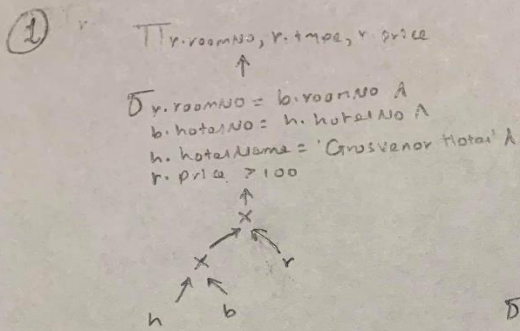 1
Π r.roomNo, r.type, r.price
↑
σ r.roomNo = b.roomNo ∧
b.hotelNo = h.hotelNo ∧
h.hotelName = 'Grosvenor Hotel' ∧
r.price > 100
↑
×
× r
h b
σ